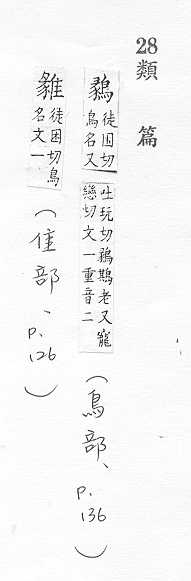 28類 篇
鶨 徒困切鳥名又吐玩切鶨鶀老又寵戀切文一重音二 (鳥部、p.136)
徒困切鳥名文一 (隹部、p.126)